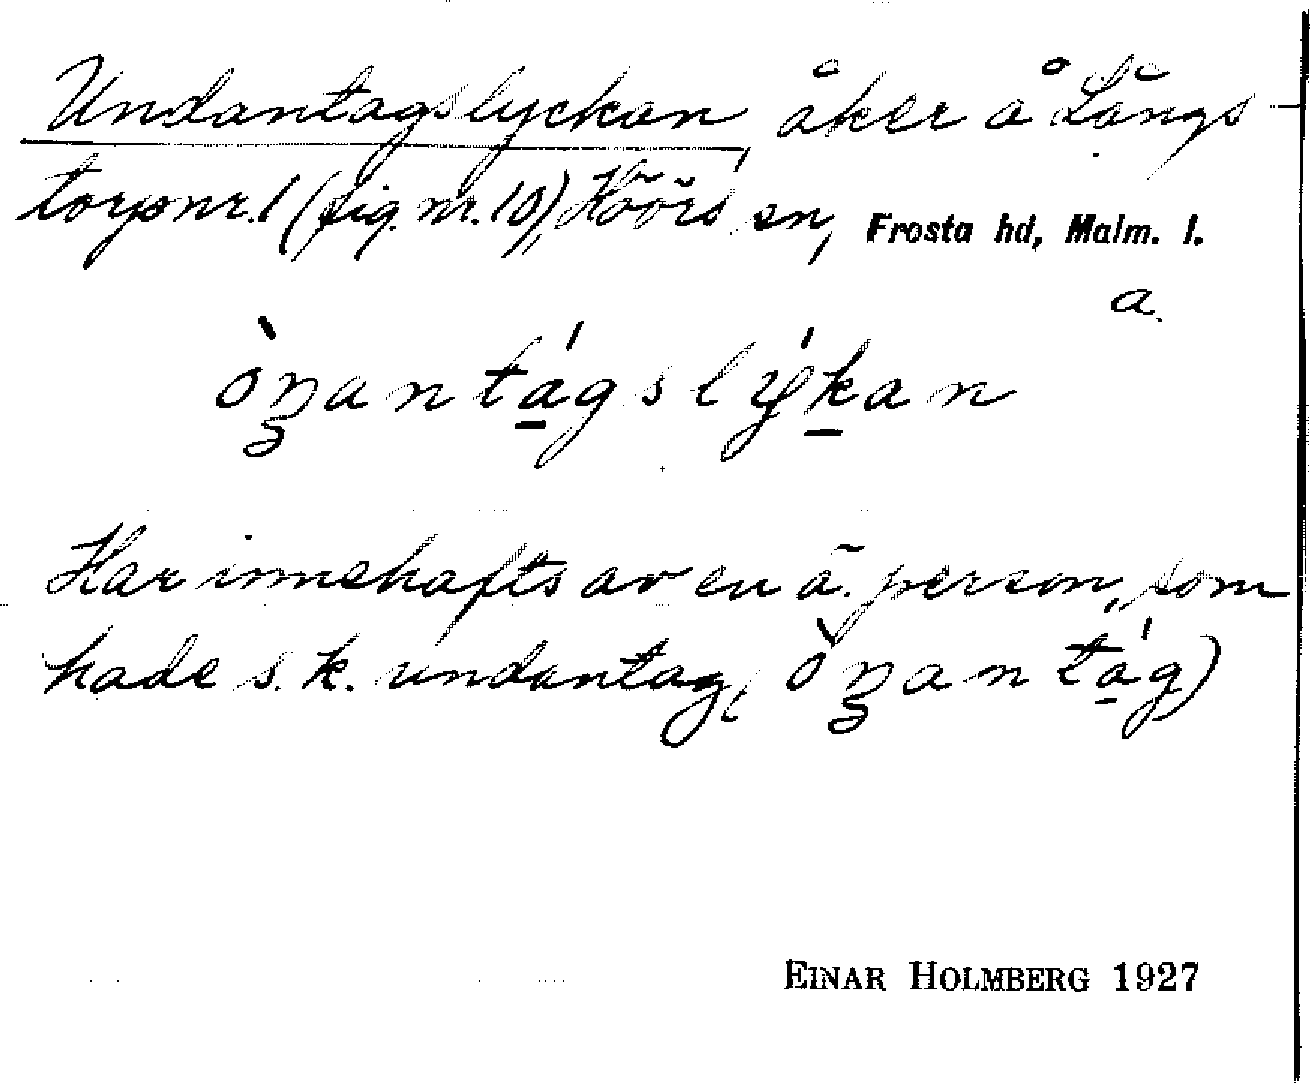 Undantagslyckan, åker å Långs-
torp nr. 1 (fig. nr. 10), Höörs sn, Frosta hd, Malm. l.
a.
ò̀ŋantá̱gslýḵan
Har innehafts av en ä. person, som
hade s.k. undantag, (òŋantá̱g)
EINAR HOLMBERG 1927